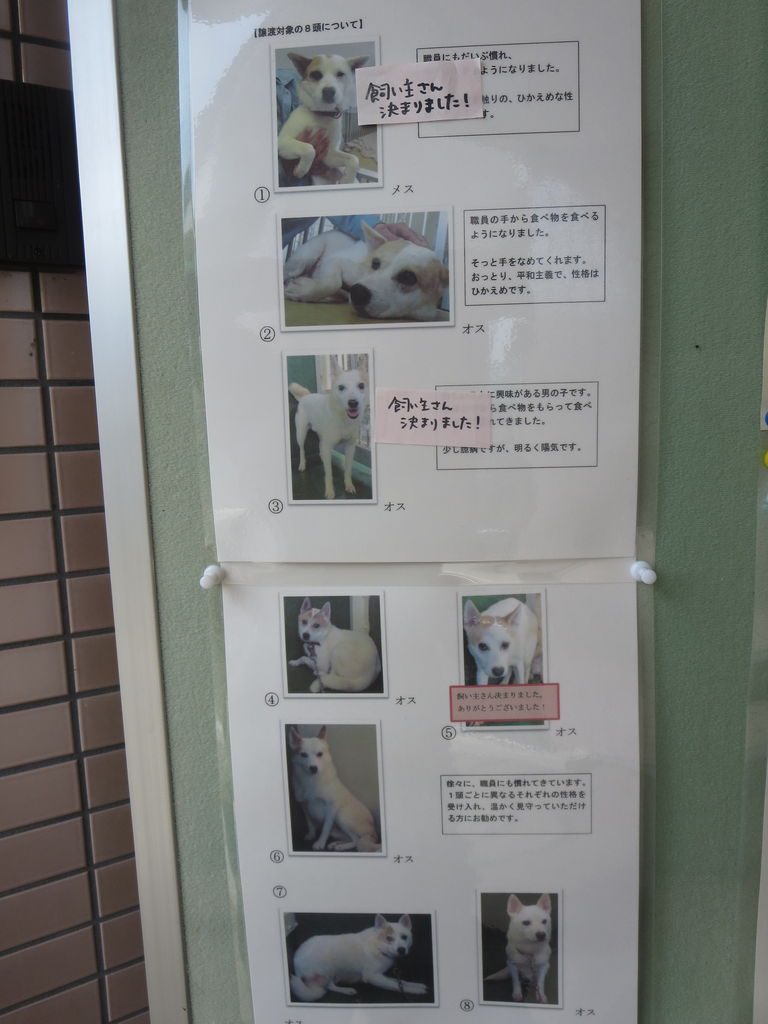 【譲渡対象の8頭について】
職員にもだいぶ慣れ、
ようになりました。
触りの、ひかえめな性
す。
飼い主さん
決まりました!
① メス
職員の手から食べ物を食べる
ようになりました。
そっと手をなめてくれます。
おっとり、平和主義で、性格は
ひかえめです。
② オス
に興味がある男の子です。
ら食べ物をもらって食べ
れてきました。
少し臆病ですが、明るく陽気です。
飼い主さん
決まりました!
③ オス
④ オス
飼い主さん決まりました。
ありがとうございました!
⑤ オス
徐々に、職員にも慣れてきています。
1頭ごとに異なるそれぞれの性格を
受け入れ、温かく見守っていただけ
る方にお勧めです。
⑥ オス
⑦
オス
⑧ オス